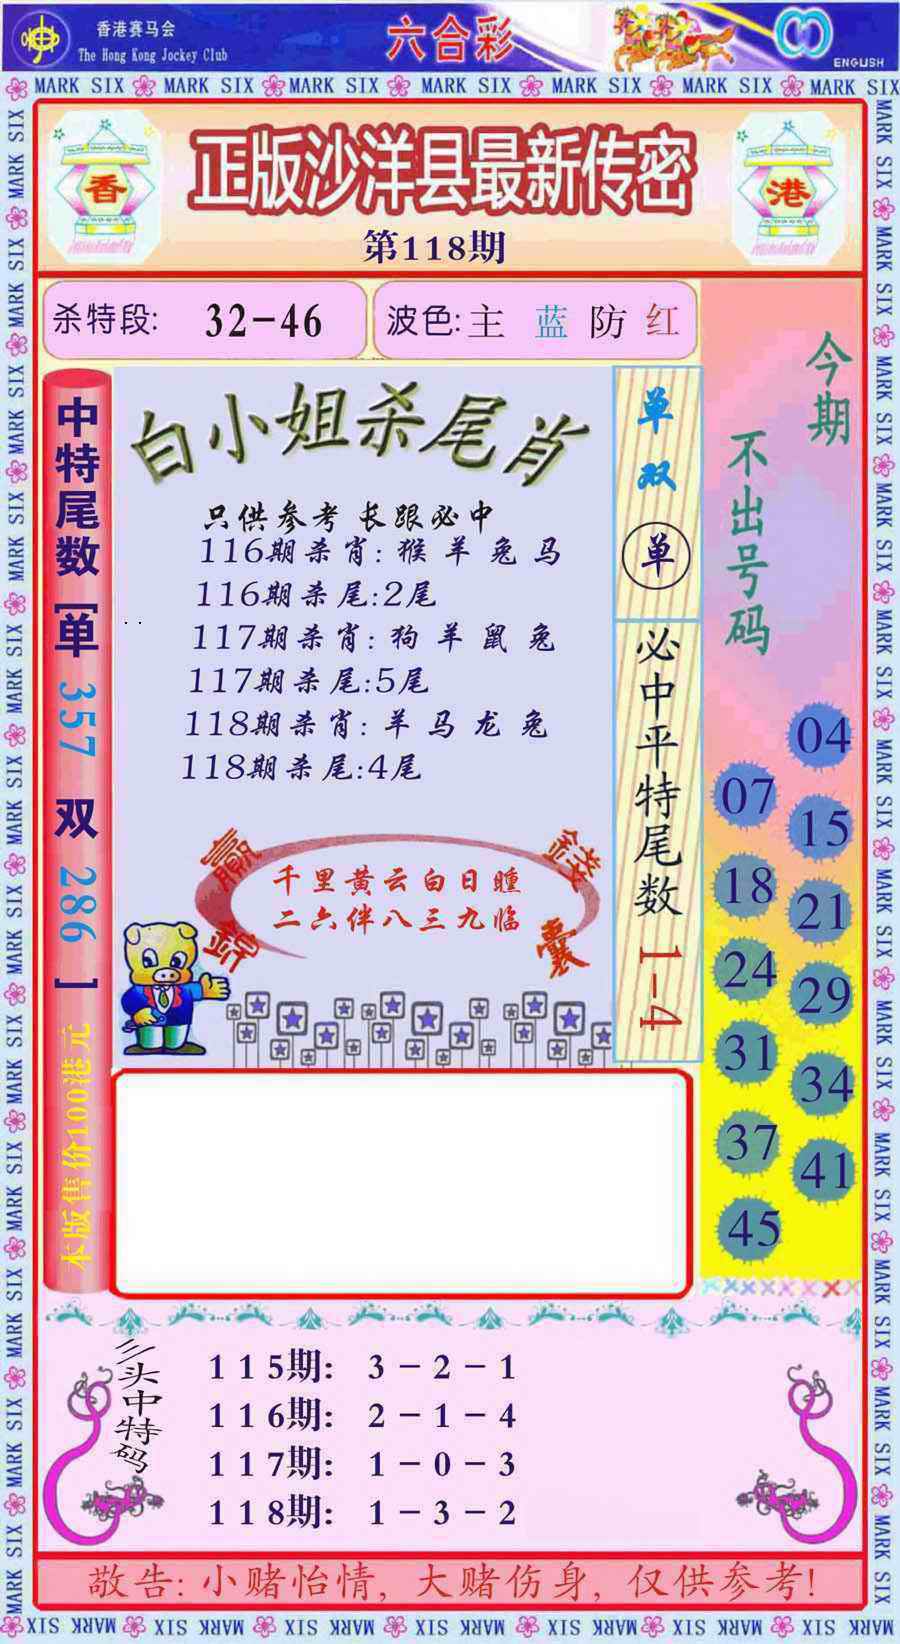 香港赛马会
The Hong Kong Jockey Club
六合彩
ENGLISH
MARK SIX MARK SIX MARK SIX MARK SIX MARK SIX MARK SIX MARK SIX
香
正版沙洋县最新传密
港
第118期
杀特段: 32-46
波色:主 蓝 防 红
今期
不出号码
04
07
15
18
21
24
29
31
34
37
41
45
中特尾数[单 357 双 286 ]
本版售价100港元
白小姐杀尾肖
只供参考 长跟必中
116期杀肖: 猴 羊 兔 马
116期杀尾:2尾
117期杀肖: 狗 羊 鼠 兔
117期杀尾:5尾
118期杀肖: 羊 马 龙 兔
118期杀尾:4尾
单双
单
必中平特尾数 1-4
赢錢
錦囊
千里黄云白日曛
二六伴八三九临
三头中特码
115期: 3-2-1
116期: 2-1-4
117期: 1-0-3
118期: 1-3-2
敬告: 小赌怡情, 大赌伤身, 仅供参考!
MARK SIX MARK SIX MARK SIX MARK SIX MARK SIX MARK SIX MARK SIX